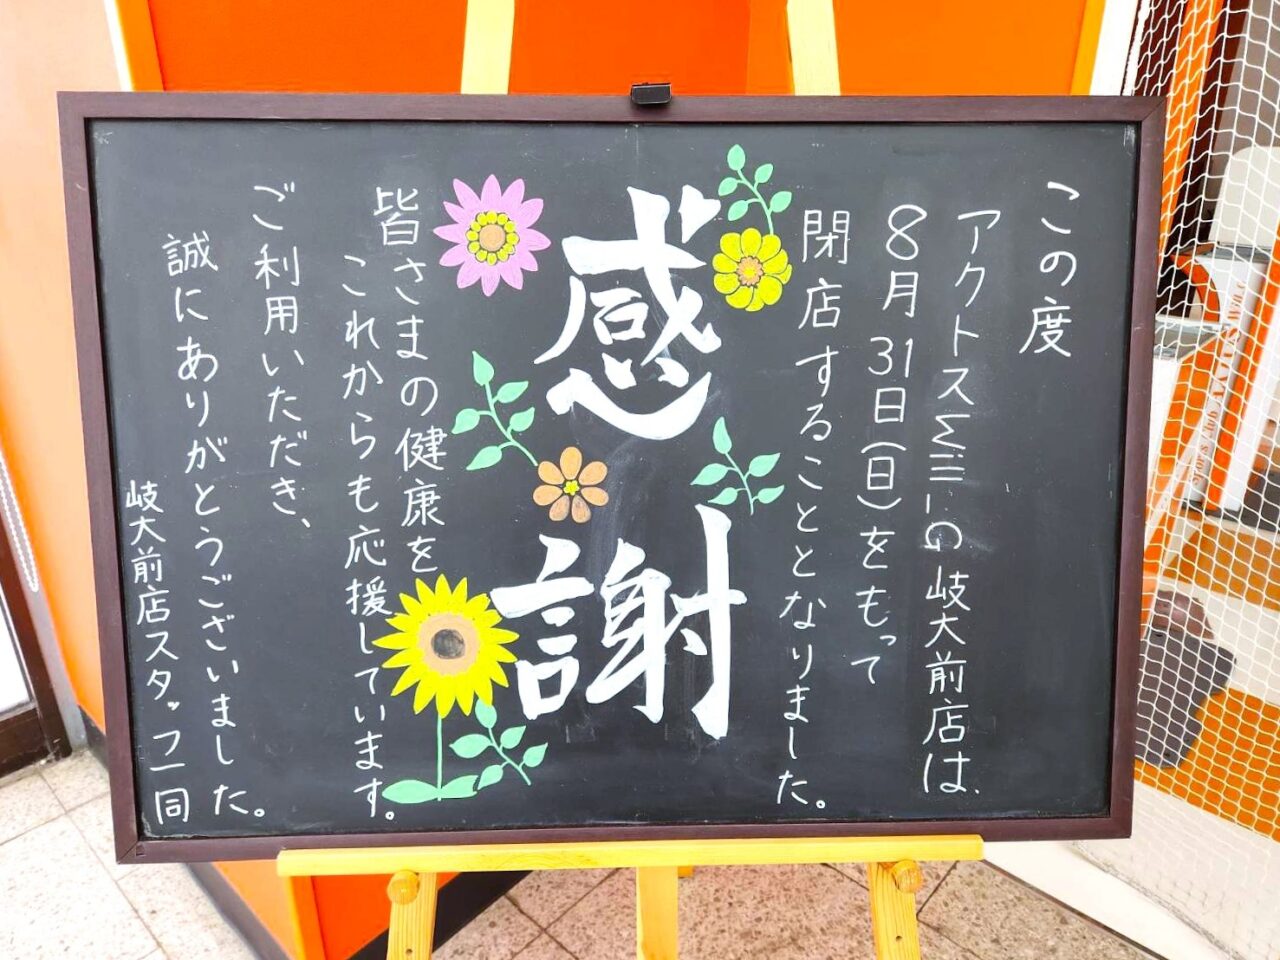 この度
アクトスWill_G岐大前店は、
8月31日(日)をもって
閉店することとなりました。
感謝
皆さまの健康を
これからも応援しています。
ご利用いただき、
誠にありがとうございました。
岐大前店スタッフ一同